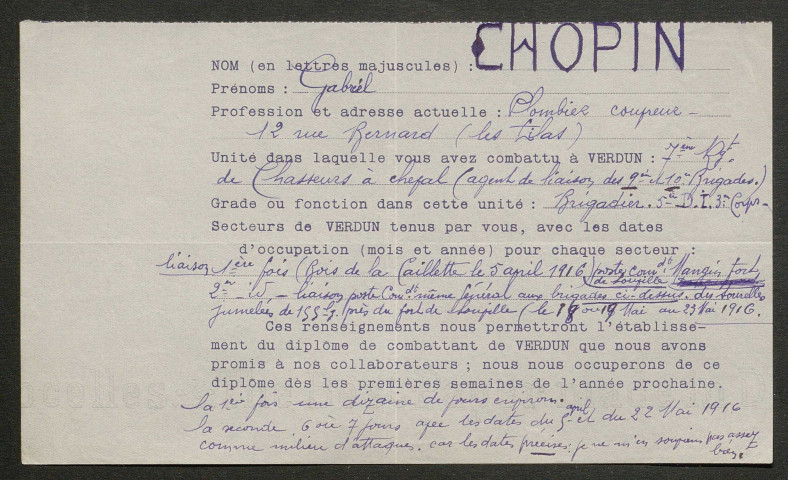 NOM (en lettres majuscules) : CHOPIN
Prénoms : Gabriel
Profession et adresse actuelle : Plombier coupreur -
12 rue Bernard (les Lilas)
Unité dans laquelle vous avez combattu à VERDUN : 7ème Rgt.
de Chasseurs à cheval (agent de liaison des 9e et 10e Brigades.)
Grade ou fonction dans cette unité : Brigadier. 5e D.I. 3e Corps -
Secteurs de VERDUN tenus par vous, avec les dates
d'occupation (mois et année) pour chaque secteur :
liaison 1ère fois (Bois de la Caillette le 5 april 1916) poste Comdt Mangin fort
de Souville
2me id - liaison poste Comdt même Général aux brigades ci-dessus. des tourelles
jumelées de 155 près du fort de Souville (le 18 ou 19 Mai au 23 Mai 1916.
Ces renseignements nous permettront l'établisse-
ment du diplôme de combattant de VERDUN que nous avons
promis à nos collaborateurs ; nous nous occuperons de ce
diplôme dès les premières semaines de l'année prochaine.
la 1ère fois une dizaine de jours environ.
la seconde 6 où 7 jours avec les dates du 5 april et du 22 Mai 1916
comme milieu d'attaques. car les dates précises, je ne m'en souviens pas assez
bien.